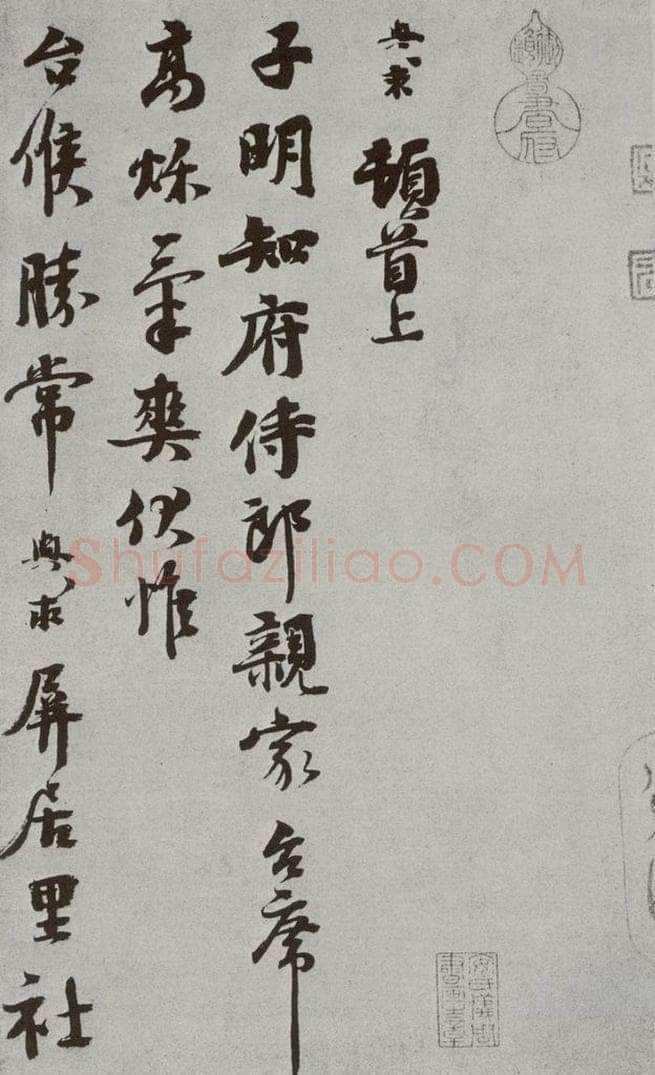 與求頓首上
子明知府侍郎親家台席
高爍氣爽伏惟
台候勝常與求屏居里社
Shufaziliao.COM